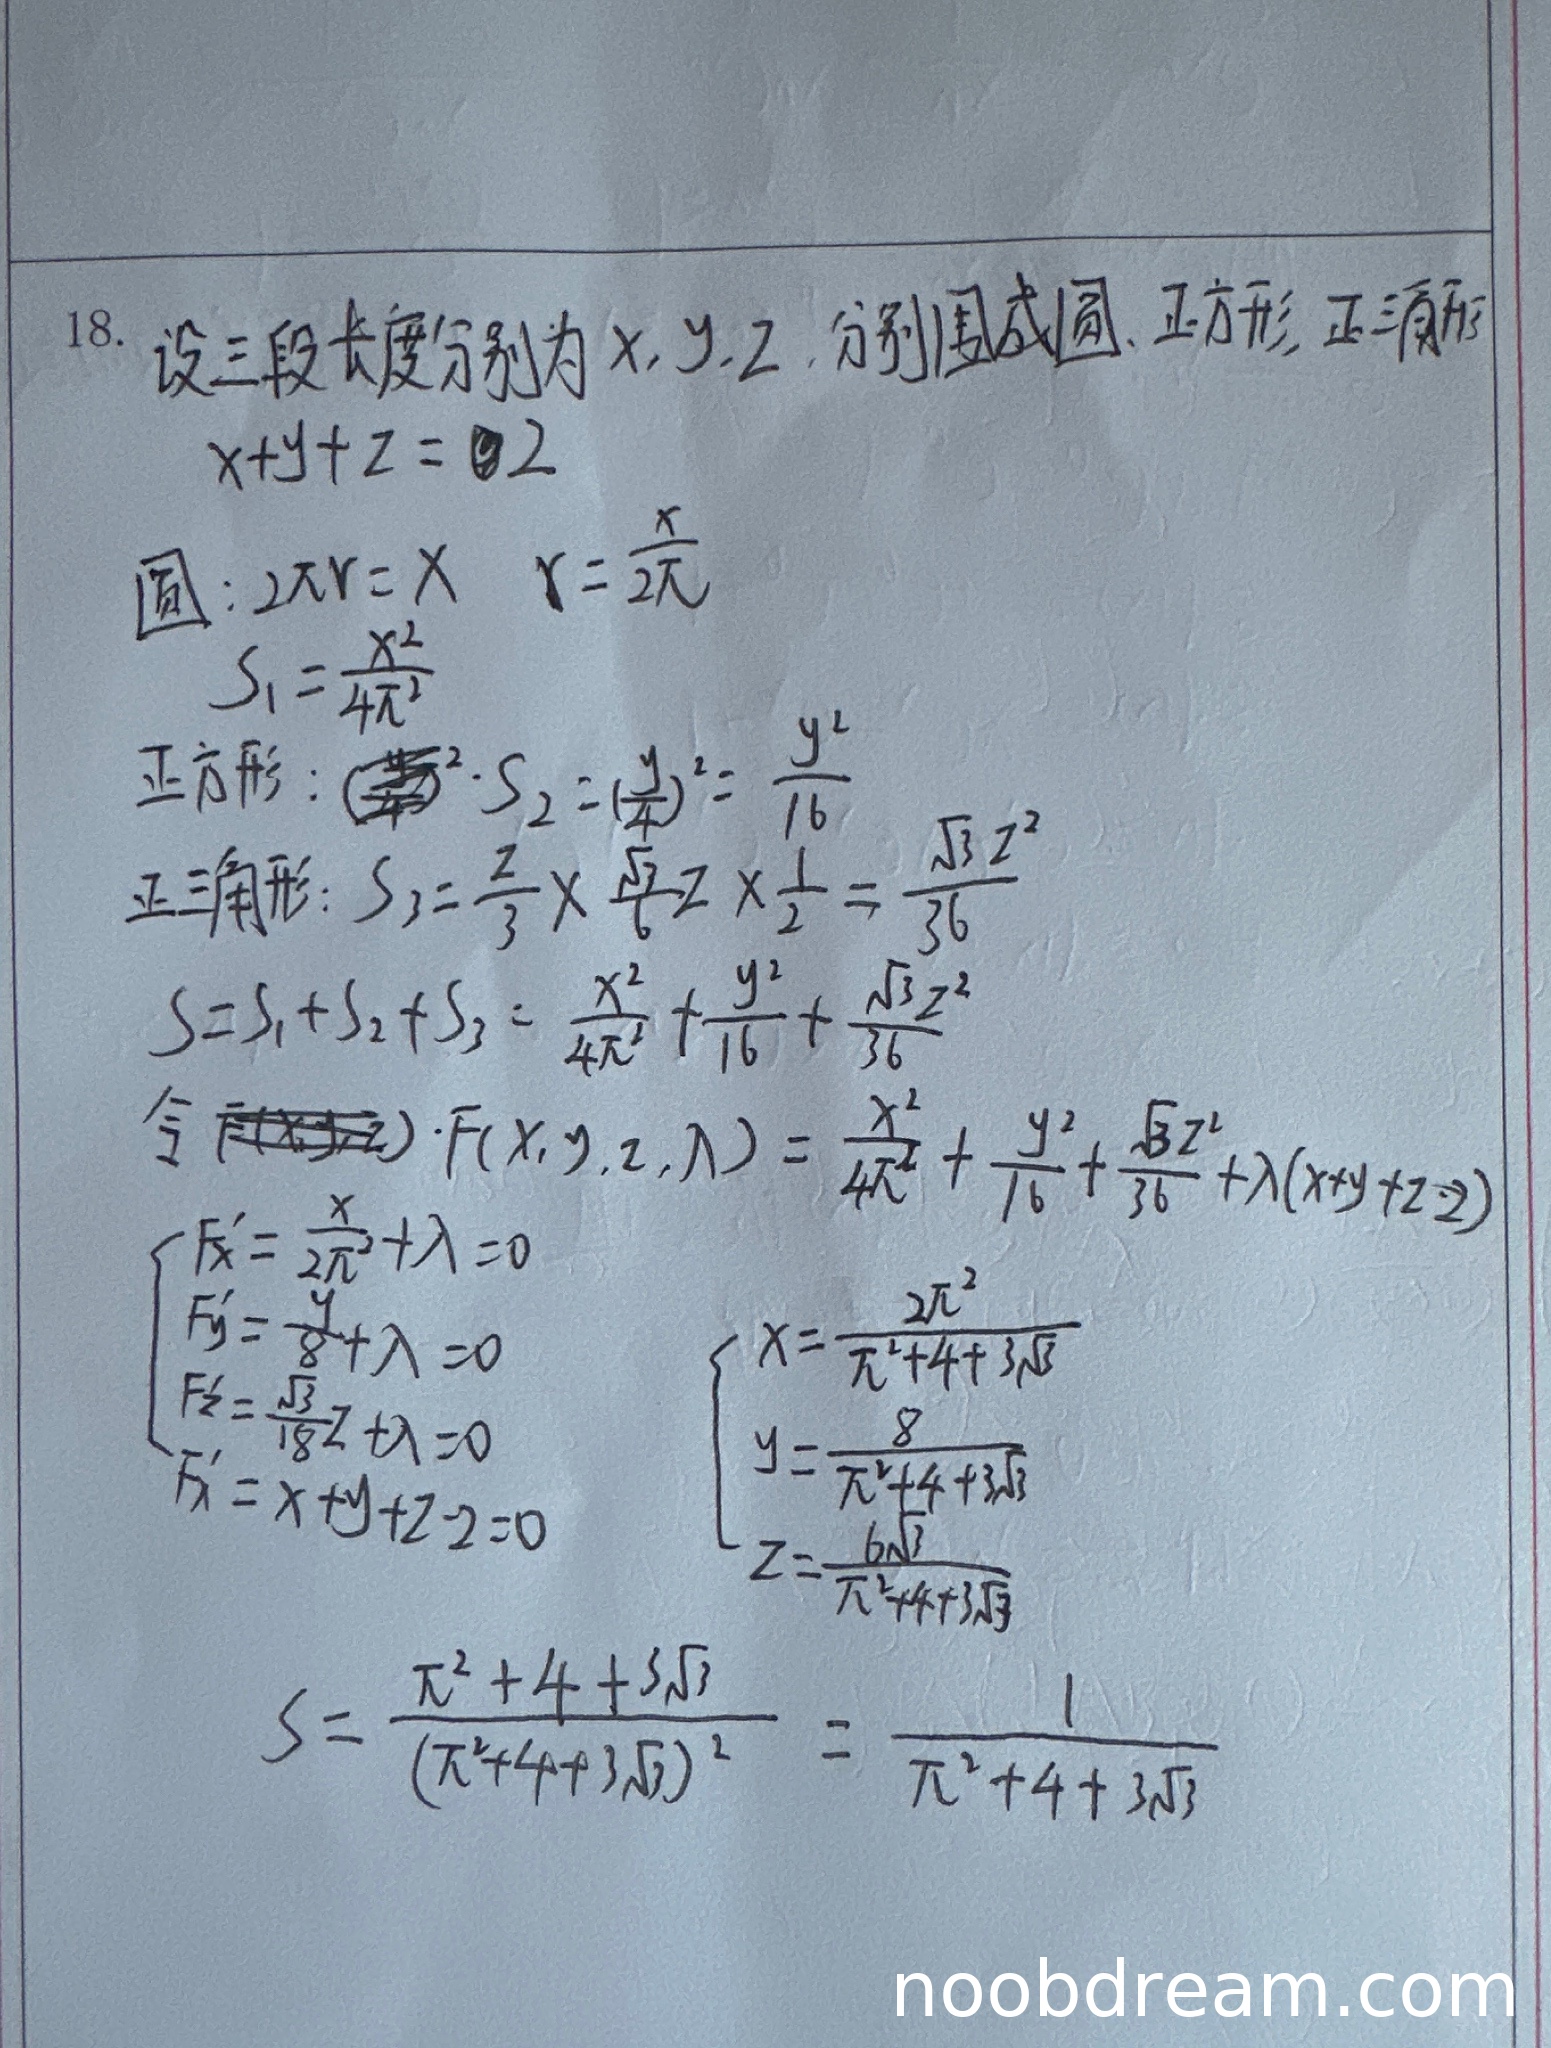 18. 设三段长度分别为 x, y, z, 分别围成圆、正方形, 正三角形
x+y+z = 2
圆: 2πr = x   r = x/(2π)
S₁ = x²/(4π²)
正方形: S₂ = (y/4)² = y²/16
正三角形: S₃ = z/3 × √3/6 z × 1/2 = √3z²/36
S = S₁ + S₂ + S₃ = x²/(4π²) + y²/16 + √3z²/36
令 F(x, y, z, λ) = x²/(4π²) + y²/16 + √3z²/36 + λ(x+y+z-2)
Fx' = x/(2π²) + λ = 0
Fy' = y/8 + λ = 0
Fz' = √3/18 z + λ = 0
Fλ' = x+y+z-2 = 0
x = 2π²/(π²+4+3√3)
y = 8/(π²+4+3√3)
z = 6√3/(π²+4+3√3)
S = (π²+4+3√3)/(π²+4+3√3)² = 1/(π²+4+3√3)
noobdream.com